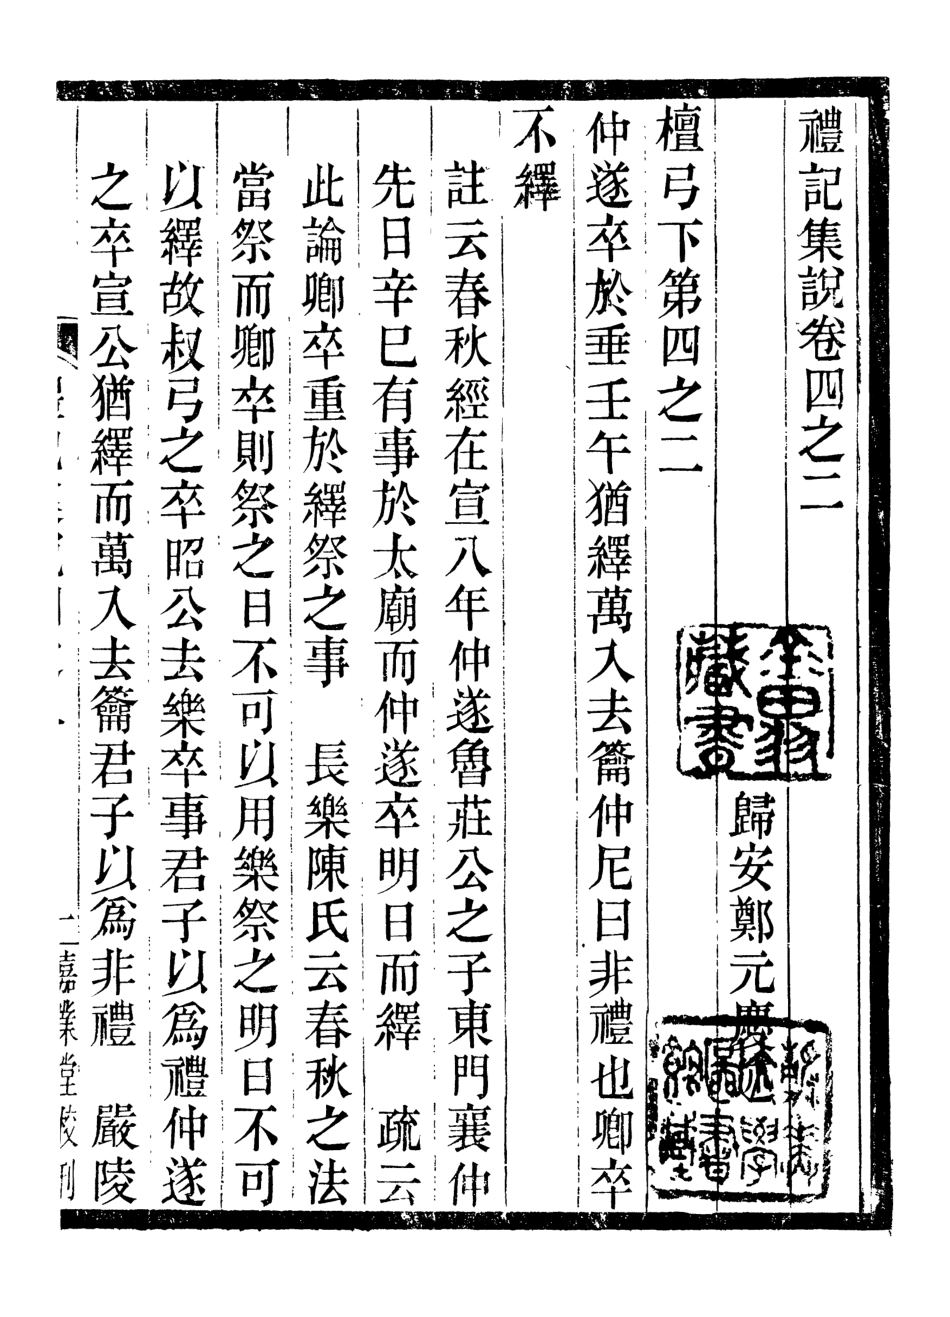 禮記集說卷四之二
歸安鄭元慶述
檀弓下第四之二
仲遂卒於垂壬午猶繹萬入去籥仲尼曰非禮也卿卒
不繹
註云春秋經在宣八年仲遂魯莊公之子東門襄仲
先日辛巳有事於太廟而仲遂卒明日而繹　疏云
此論卿卒重於繹祭之事　長樂陳氏云春秋之法
當祭而卿卒則祭之日不可以用樂祭之明日不可
以繹故叔弓之卒昭公去樂卒事君子以爲禮仲遂
之卒宣公猶繹而萬入去籥君子以爲非禮　嚴陵
嘉業堂校刊